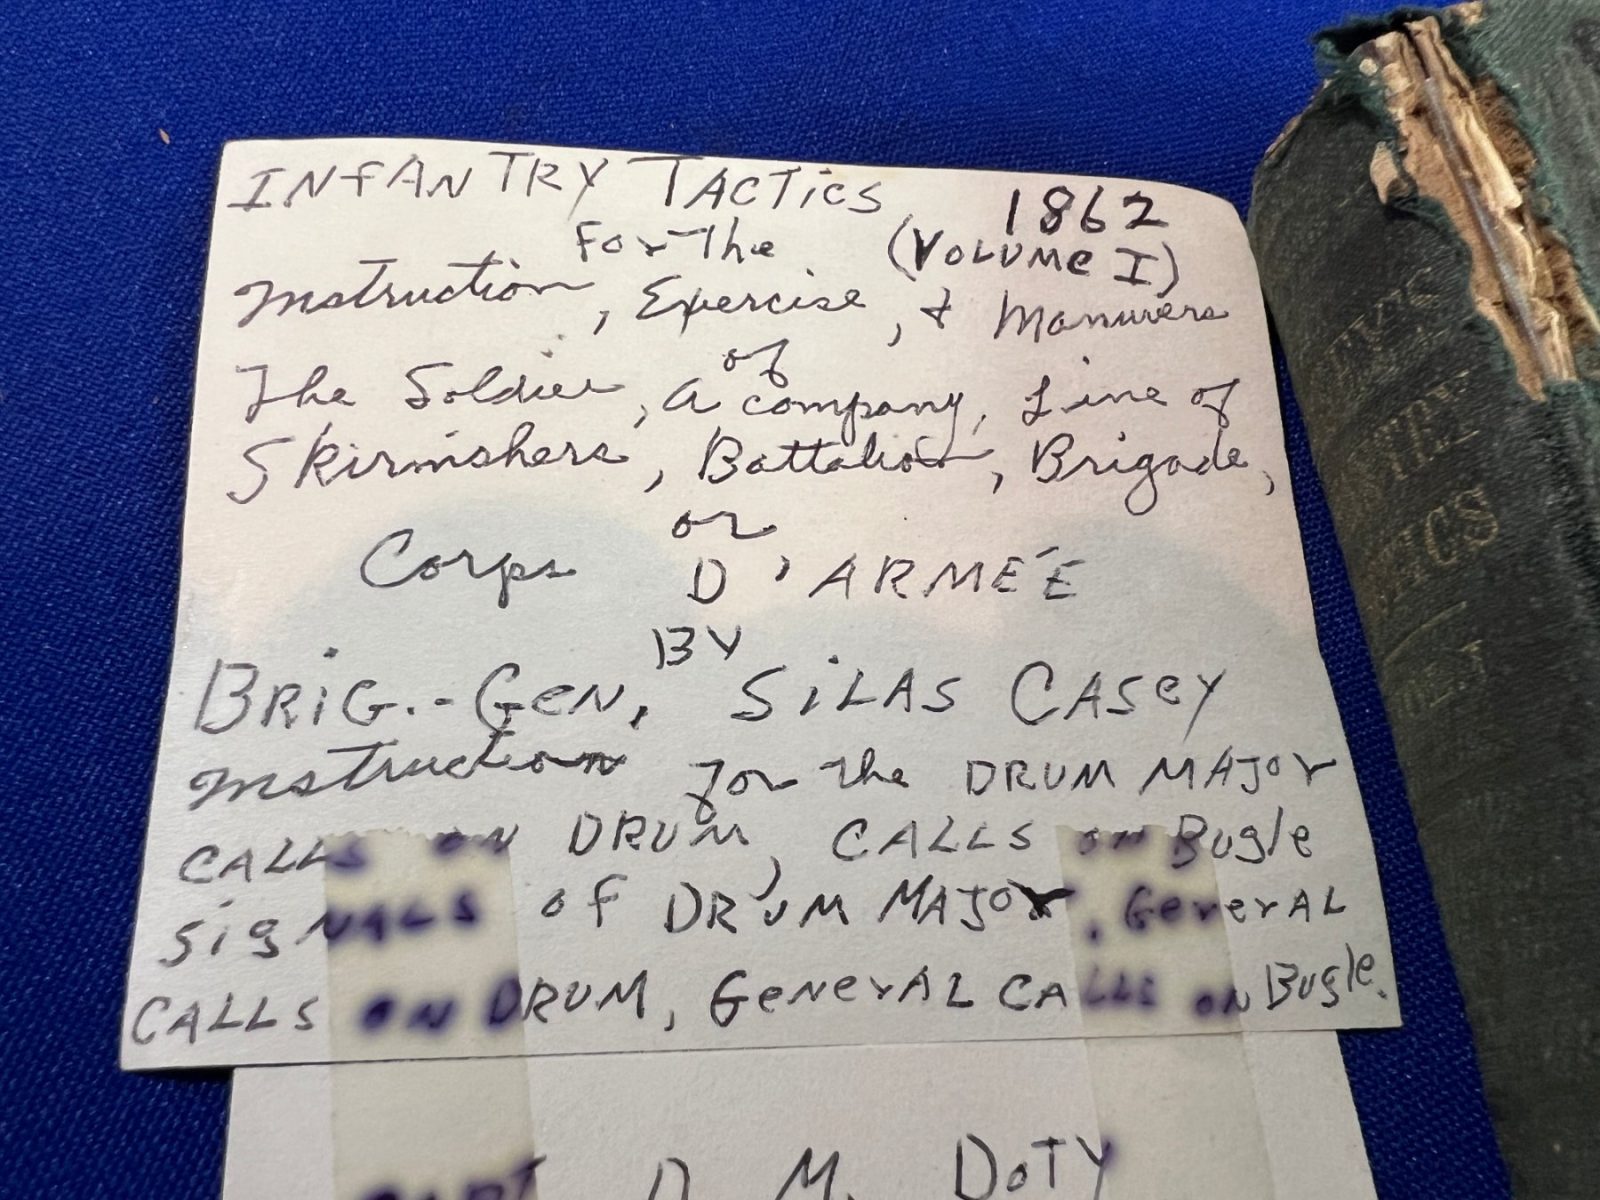 INFANTRY TACTICS 1862
For The (VOLUME I)
Instruction, Exercise, & Manuvers
of
The Soldier, A company, Line of
Skirmishers, Battalion, Brigade,
or
Corps D'ARMÉE
BY
BRIG.-GEN. SILAS CASEY
Instruction for the DRUM MAJOR
CALLS ON DRUM, CALLS ON Bugle
SigNALS of DRUM MAJOR, GeNerAL
CALLS ON DRUM, GeNerAL CALLS ON Bugle.
CAPT D. M. DOTY
TICS